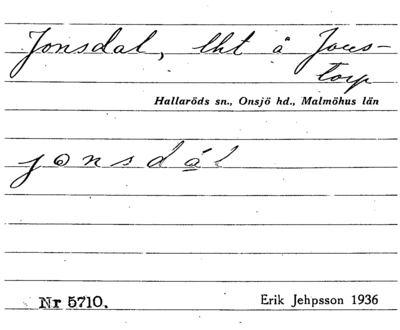 Jonsdal, lht å Jons-
torp
Hallaröds sn., Onsjö hd., Malmöhus län
jonsdá̲l
Nr 5710.
Erik Jehpsson 1936